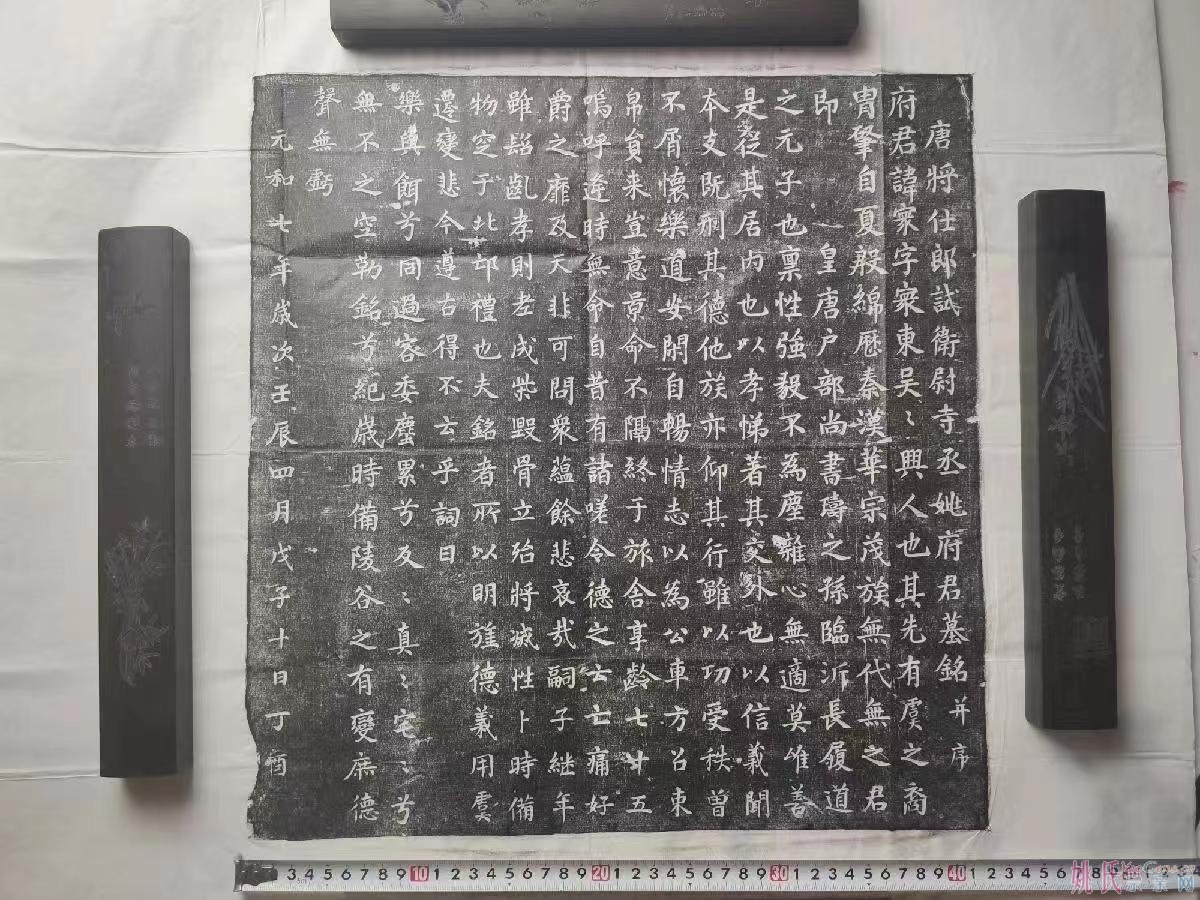 唐將仕郎試衛尉寺丞姚府君墓銘并序
府君諱寀字寀東吳〻興人也其先有虞之裔
胄肇自夏殷綿歷秦漢華宗茂族無代無之君
即皇唐户部尚書璹之孫臨沂長履道
之元子也稟性強毅不為塵雜心無適莫唯善
是從其居内也以孝悌著其交外也以信義聞
本支既刑其德他族亦仰其行雖以功受秩曾
不屑懷樂道安閑自暢情志以為公車方召束
帛賁来豈意景命不隔終于旅舍享齡七十五
嗚呼逢時無命自昔有諸嗟令德之士亡痛好
爵之靡及天非可問衆蘊餘悲哀哉嗣子継年
雖齠齓孝則老成柴毀骨立殆將滅性卜時備
物窆于北邙禮也夫銘者所以明旌德義用虞
遷變悲今遵古得不云乎詞曰
樂與餌兮同過客委塵累兮反〻真〻宅〻兮
無不之空勒銘兮紀歲時備陵谷之有變庶德
聲無虧
元和七年歲次壬辰四月戊子十日丁酉
3 4 5 6 7 8 9 10 1 2 3 4 5 6 7 8 9 20 1 2 3 4 5 6 7 8 9 30 1 2 3 4 5 6 7 8 9 40 1 2 3 4 5 6 7 8
姚氏宗亲网